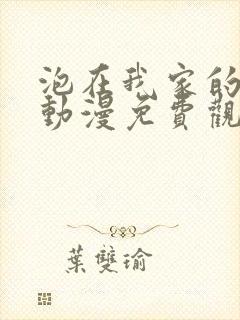 泡在我家的
動漫免費觀
葉雙瑜